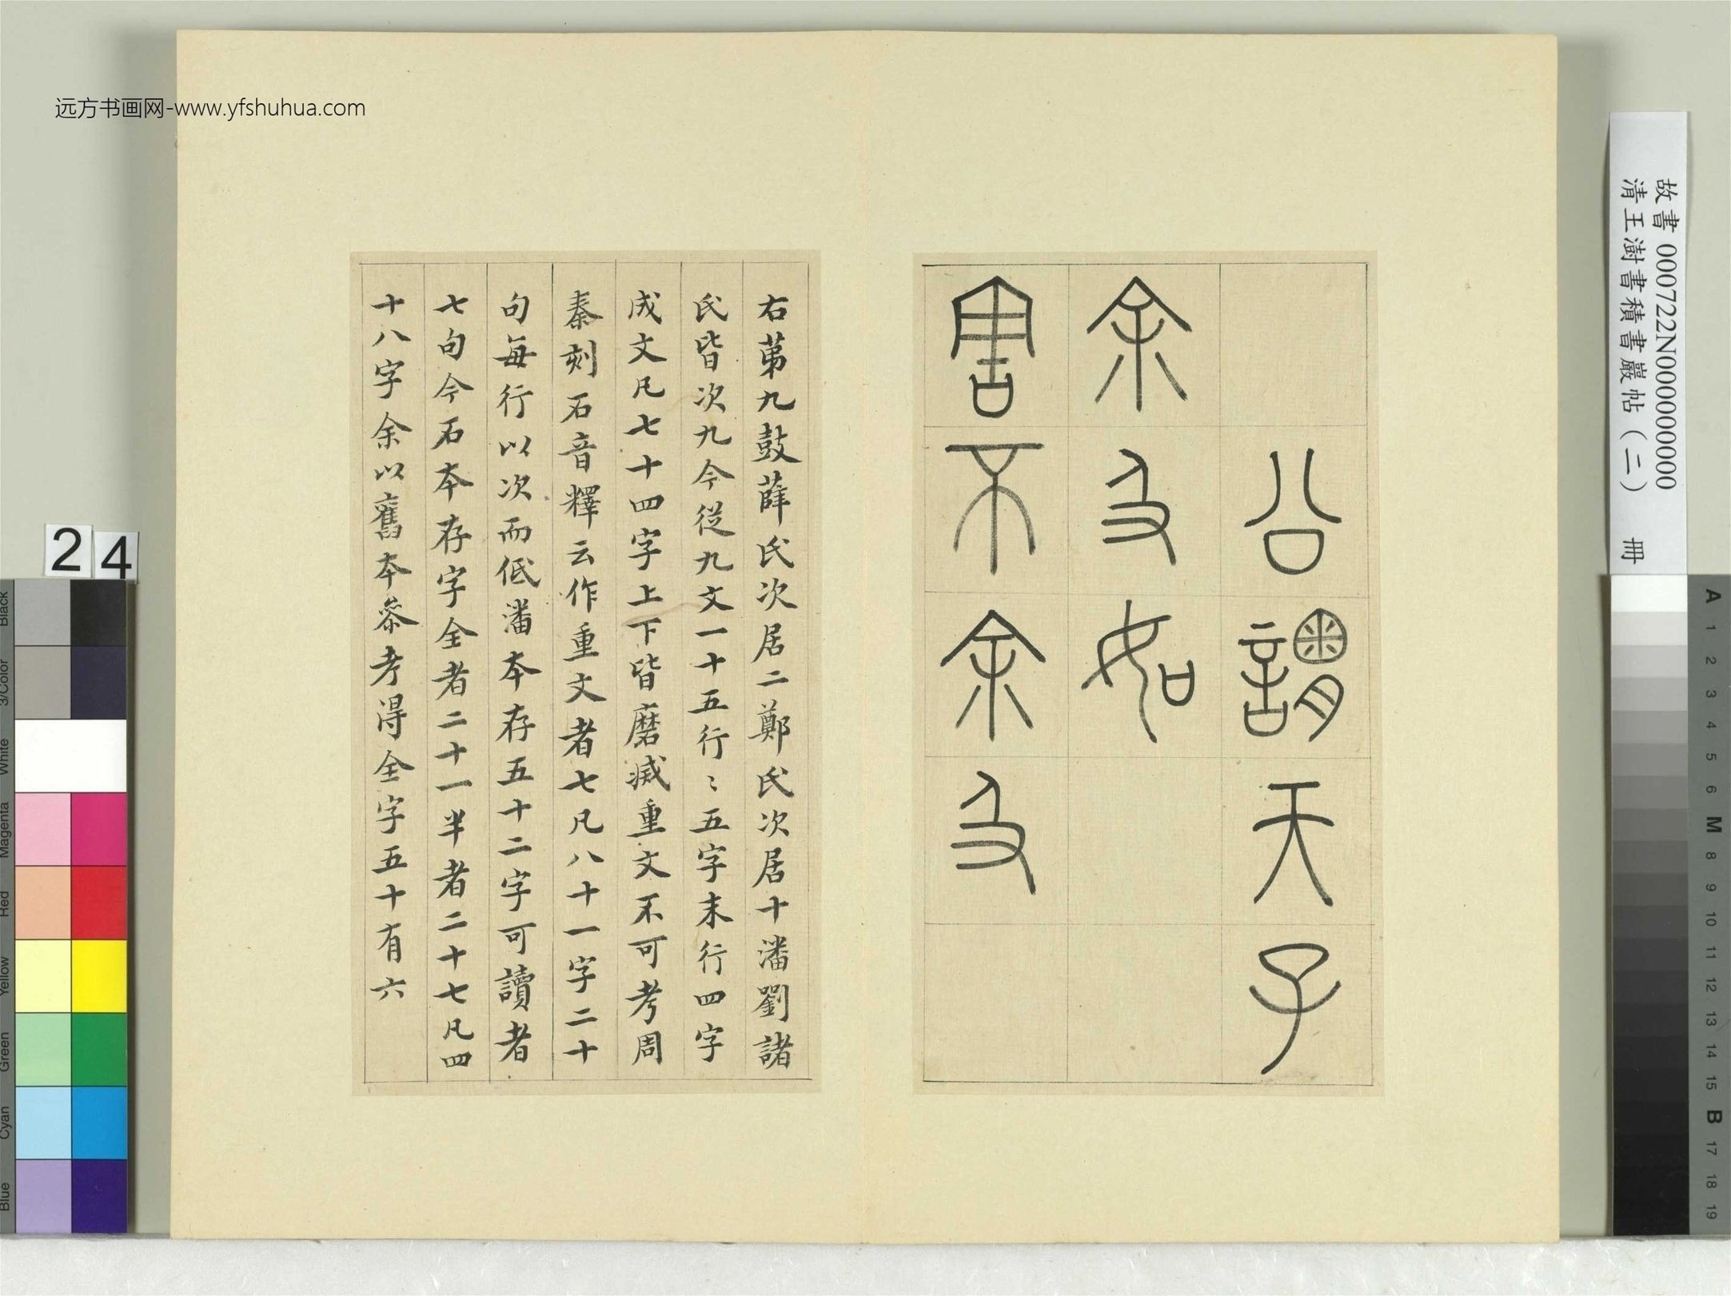 远方书画网-www.yfshuhua.com
公謂天子
余及如
害不余及
右第九鼓薛氏次居二鄭氏次居十潘劉諸
氏皆次九今從九文一十五行〻五字末行四字
成文凡七十四字上下皆磨滅重文不可考周
秦刻石音釋云作重文者七凡八十一字二十
句每行以次而低潘本存五十二字可讀者
七句今石本存字全者二十一半者二十七凡四
十八字余以舊本叅考得全字五十有六
故書 000722N000000000
清王澍書積書巖帖(二) 冊
24
Blue Cyan Green Yellow Red Magenta White 3/Color Black
A 1 2 3 4 5 6 M 8 9 10 11 12 13 14 15 B 17 18 19